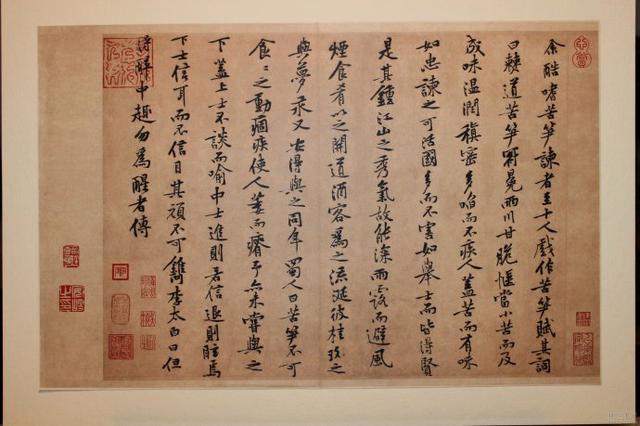 余酷嗜苦笋諫者至十人戲作苦笋賦其詞
曰僰道苦笋冠冕兩川甘脆愜當小苦而及
成味溫潤稹密多啗而不疾人蓋苦而有味
如忠諫之可活國多而不害如舉士而皆得賢
是其鍾江山之秀氣故能深雨露而避風
煙食肴以之開道酒客為之流涎彼桂玫之
與夢汞又安得與之同年蜀人曰苦笋不可
食食之動痼疾使人萎而瘠予亦未嘗與之
下蓋上士不談而喻中士進則若信退則眩焉
下士信耳而不信目其頑不可鐫李太白曰但
得醉中趣勿為醒者傳